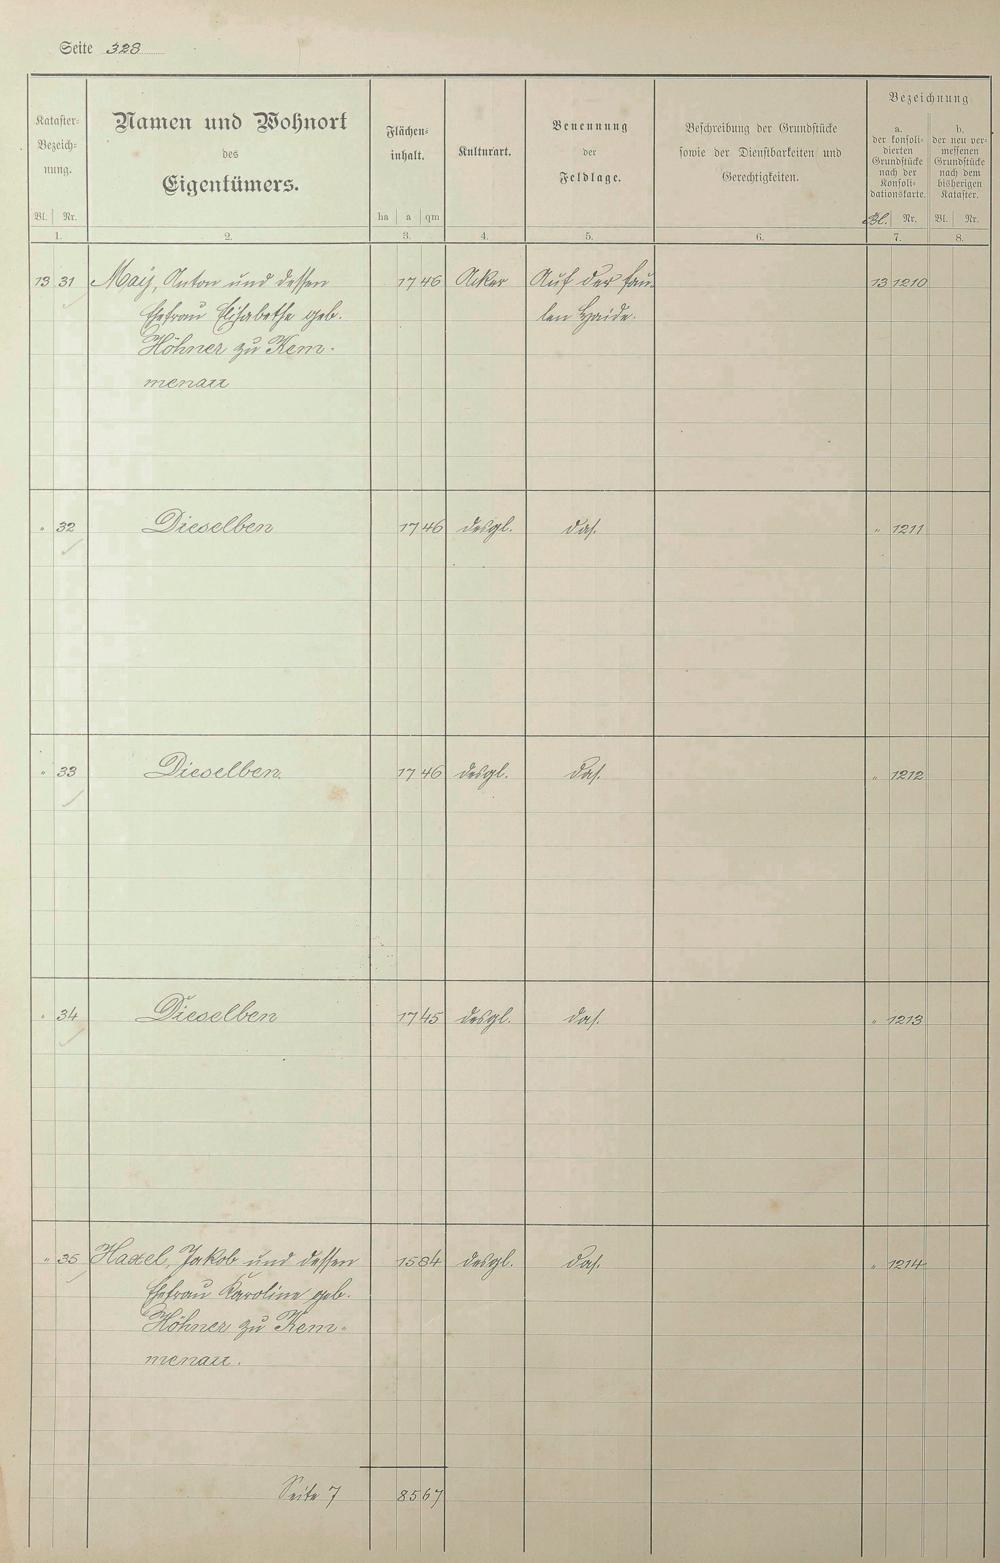 Seite 323
Kataster-
Bezeich-
nung.
Bl. Nr.
Namen und Wohnort
des
Eigentümers.
Flächen-
inhalt.
ha a qm
Kulturart.
Benennung
der
Feldlage.
Beschreibung der Grundstücke
sowie der Dienstbarkeiten und
Gerechtigkeiten.
Bezeichnung
a.
der konsoli-
dierten
Grundstücke
nach der
Konsoli-
dationskarte.
Bl. Nr.
b.
der neu ver-
messenen
Grundstücke
nach dem
bisherigen
Kataster.
Bl. Nr.
1. 2. 3. 4. 5. 6. 7. 8.
13 31 May, Anton und dessen 17 46 Acker Auf der fau- 13 1210
Ehefrau Elisabethe geb. len Haide.
Höhner zu Kem-
menau
" 32 Dieselben 17 46 desgl. das. " 1211
" 33 Dieselben 17 46 desgl. das. " 1212
" 34 Dieselben 17 45 desgl. das. " 1213
" 35 Haxel, Jakob und dessen 15 84 desgl. das. " 1214
Ehefrau Karoline geb.
Höhner zu Kem-
menau.
Seite 7 85 67